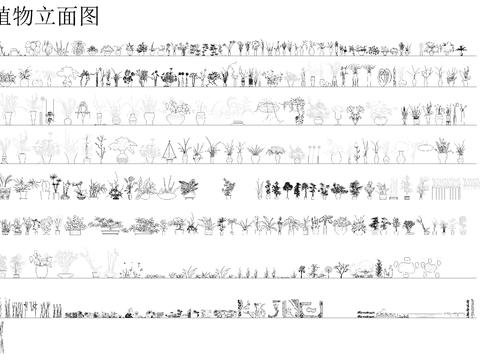 植物立面图